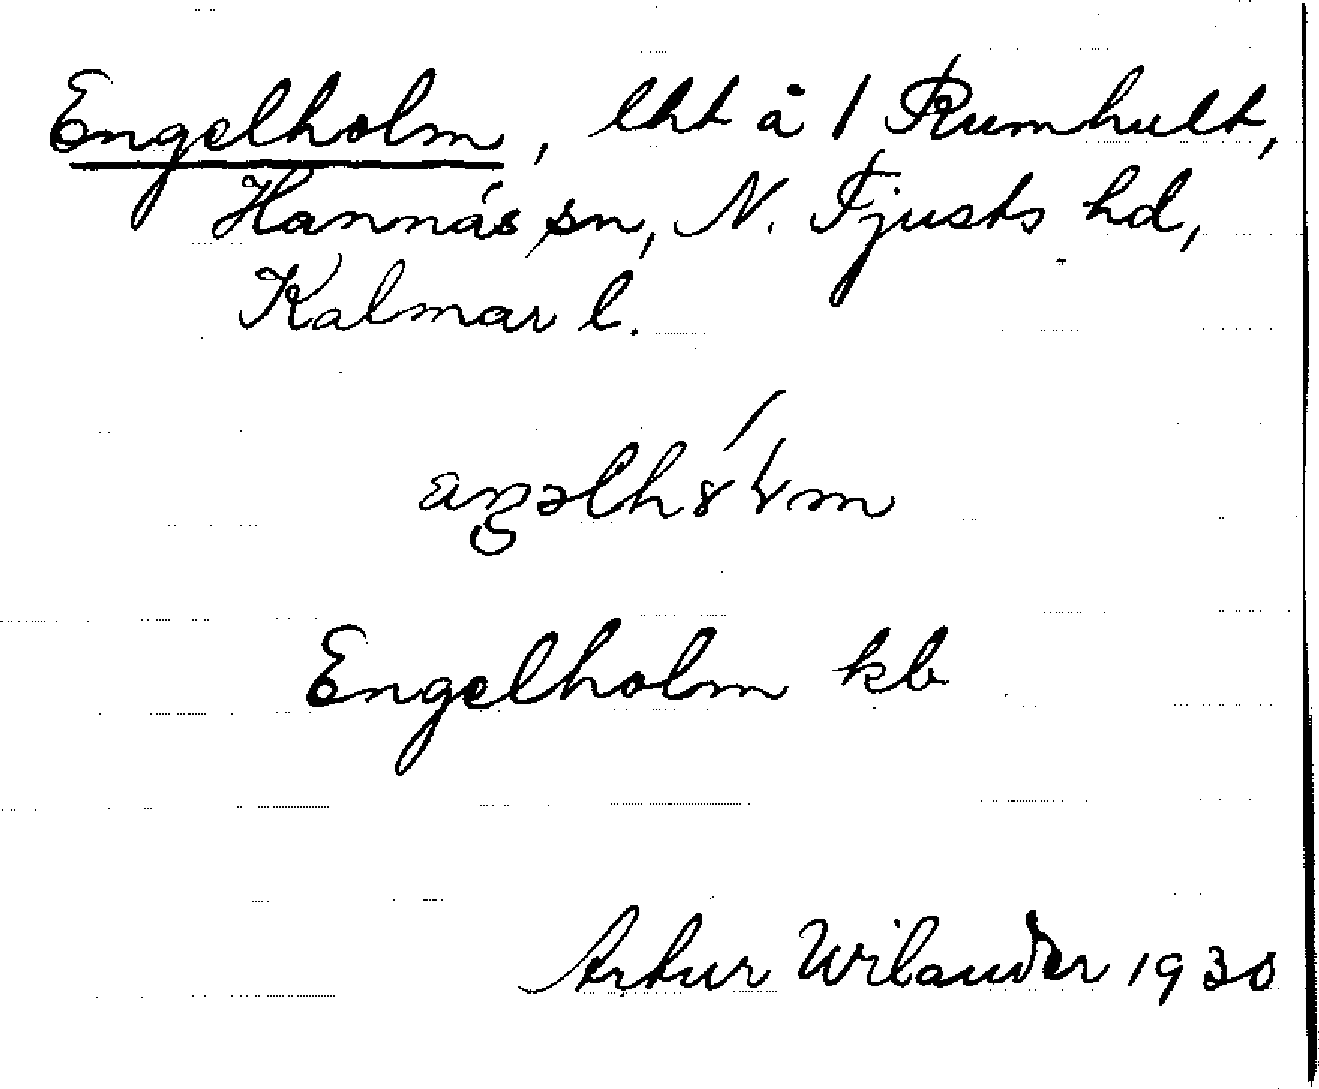 Engelholm, lht å 1 Rumhult,
Hannäs sn, N. Tjusts hd,
Kalmar l.
Engelholm kb
Artur Wilander 1930